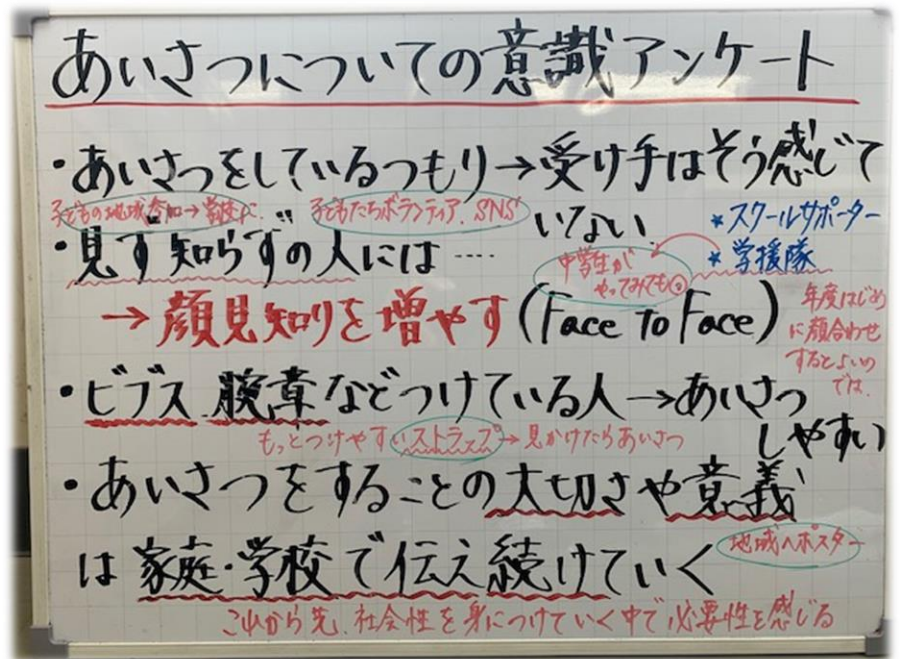 あいさつについての意識アンケート
・あいさつをしているつもり→受け手はそう感じて
いない
子どもの地域参加→学校へ.
子どもたちボランティア. SNS
★スクールサポーター
★学援隊
・見ず知らずの人には……
中学生が
やってみても◎
→顔見知りを増やす(Face To Face)
年度はじめ
に顔合わせ
するとよいの
では.
・ビブス 腕章などつけている人→あいさつ
しやすい
もっとつけやすいストラップ→見かけたらあいさつ
・あいさつをすることの大切さや意義
は家庭・学校で伝え続けていく
地域へポスター
これから先、社会性を身につけていく中で必要性を感じる